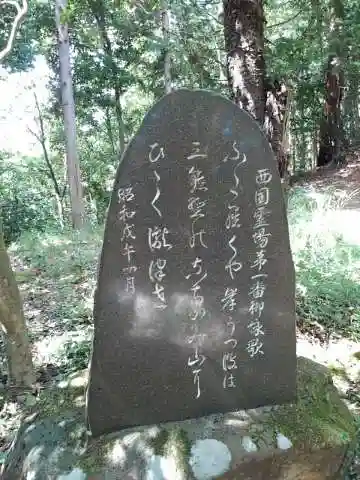 西国霊場第一番御詠歌
ふだらくや岸うつ波は
三熊野の那智のお山に
ひゞく瀧津せ
昭和戊午四月